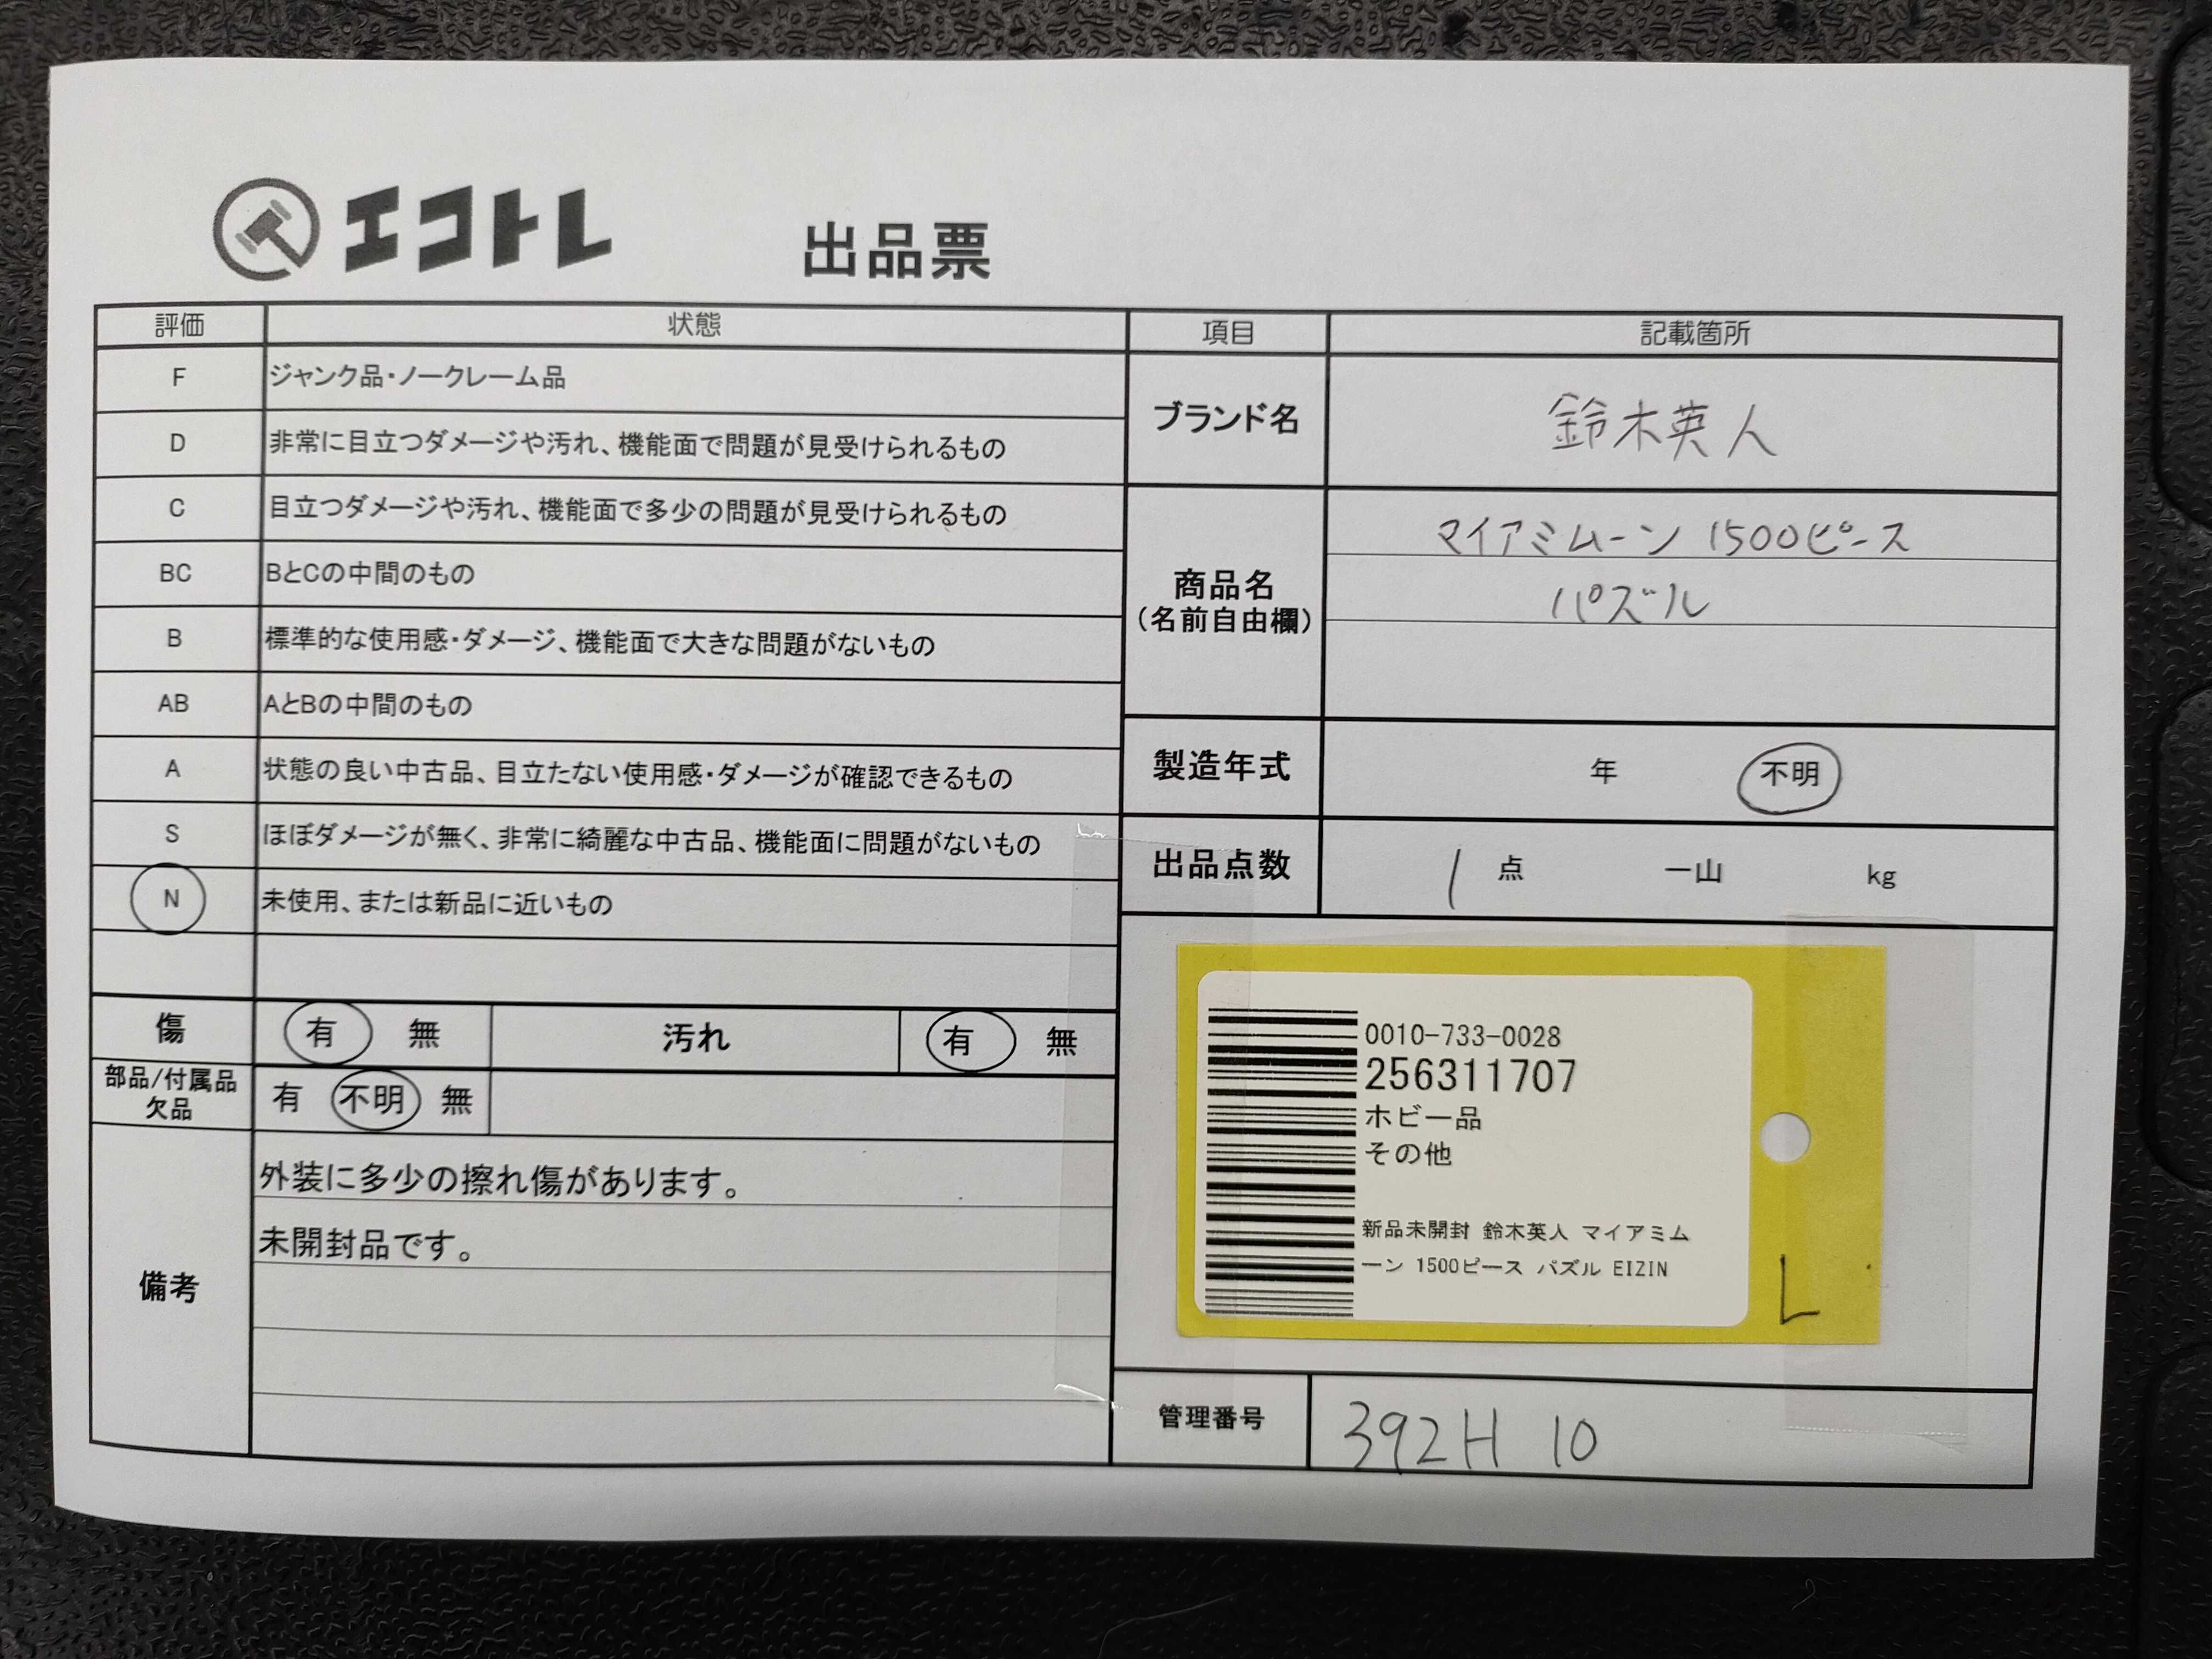 エコトレ 出品票
評価 状態
F ジャンク品・ノークレーム品
D 非常に目立つダメージや汚れ、機能面で問題が見受けられるもの
C 目立つダメージや汚れ、機能面で多少の問題が見受けられるもの
BC BとCの中間のもの
B 標準的な使用感・ダメージ、機能面で大きな問題がないもの
AB AとBの中間のもの
A 状態の良い中古品、目立たない使用感・ダメージが確認できるもの
S ほぼダメージが無く、非常に綺麗な中古品、機能面に問題がないもの
N 未使用、または新品に近いもの
傷 有 無 汚れ 有 無
部品/付属品
欠品
有 不明 無
備考
外装に多少の擦れ傷があります。
未開封品です。
項目 記載箇所
ブランド名 鈴木英人
商品名
(名前自由欄)
マイアミムーン 1500ピース
パズル
製造年式 年 不明
出品点数 1 点 一山 kg
0010-733-0028
256311707
ホビー品
その他
新品未開封 鈴木英人 マイアミム
ーン 1500ピース パズル EIZIN
L
管理番号 392H 10